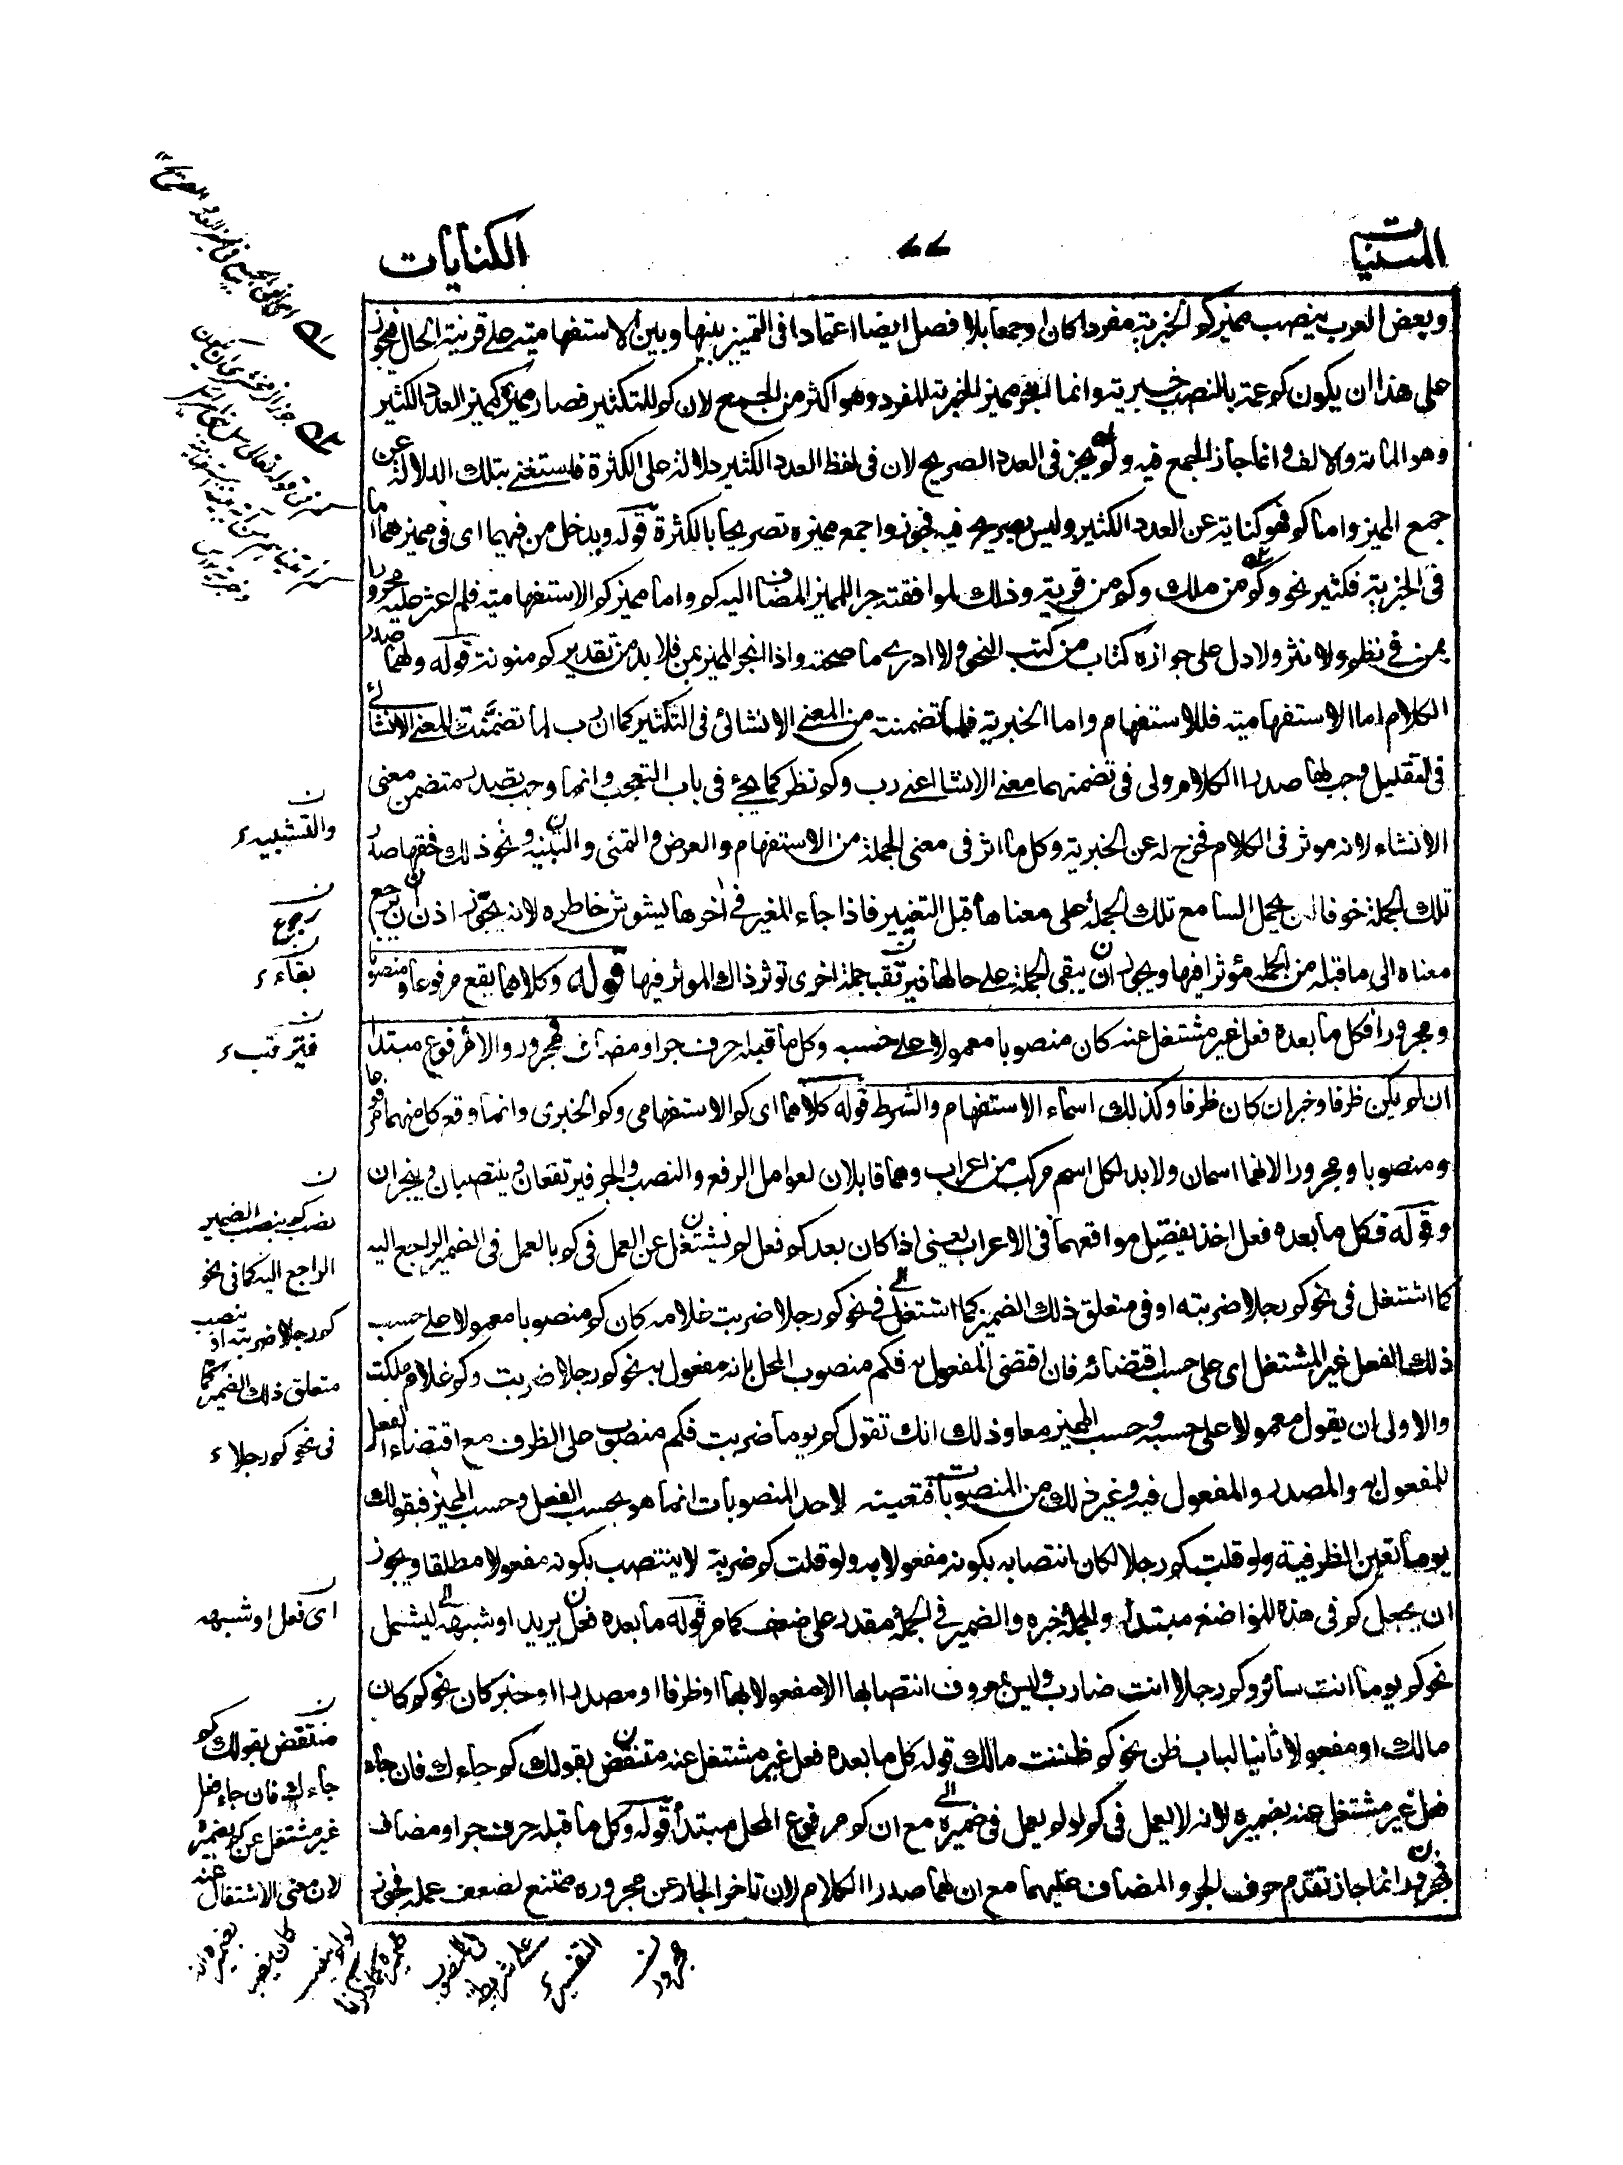 المبنيات
٧٧
الكنايات
وبعض العرب ينصب مميز كم الخبرية مفردا كان او جمعا بلا فصل ايضا اعتمادا فى التمييز بينها وبين الاستفهامية على قرينة الحال فيجوز
على هذا ان يكون كم عمة بالنصب خبرية وانما انجر مميز الخبرية المفرد وهو اكثر من الجمع لان كم للتكثير فصار مميزه كمميز العدد الكثير
وهو المائة والالف وانما جاز الجمع فيه ولم يجز فى العدد الصريح لان فى لفظ العدد الكثير دلالة على الكثرة فاستغنى بتلك الدلالة عن
جمع المميز واما كم فهو كناية عن العدد الكثير وليس بصريح فيه فجوزوا جمع مميزه تصريحا بالكثرة قوله ويدخل من فيهما اى فى مميزهما اما
فى الخبرية فكثير نحو وكم من ملك وكم من قرية وذلك لموافقته جرا للمميز المضاف اليه كم واما مميز كم الاستفهامية فلم اعثر عليه مجرورا
بمن فى نظم ولا نثر ولا دل على جوازه كتاب من كتب النحو ولا ادرى ما صحته واذا انجر المميز بمن فلا بد من تقدير كم منونة قوله ولهما صدر
الكلام اما الاستفهامية فللاستفهام واما الخبرية فلما تضمنته من المعنى الانشائى فى التكثير كما ان رب لما تضمنت المعنى الانشائى
فى التقليل وجب لها صدر الكلام ولى فى تضمنهما معنى الانشاء اعنى رب وكم نظر كما يجئ فى باب التعجب وانما وجب تصدر متضمن معنى
الانشاء لانه موثر فى الكلام مخرج له عن الخبرية وكل ما اثر فى معنى الجملة من الاستفهام والعرض والتمنى والتنبيه ونحو ذلك فحقها صدر
تلك الجملة خوفا من ان يحمل السامع تلك الجملة على معناها قبل التغيير فاذا جاء المغير فى اخرها يشوش خاطره لانه يجوز اذن ان يرجع
معناه الى ما قبله من الجملة مؤثرا فيها ويجوز ان يبقى الجملة على حالها فيرتقب جملة اخرى توثر ذاك الموثر فيها قوله وكلاهما يقع مرفوعا ومنصوبا
ومجرورا فكل ما بعده فعل غير مشتغل عنه كان منصوبا معمولا على حسبه وكل ما قبله حرف جر او مضاف فمجرور والا فمرفوع مبتدأ
ان لم يكن ظرفا وخبر ان كان ظرفا وكذلك اسماء الاستفهام والشرط قوله كلاهما اى كم الاستفهامى وكم الخبرى وانما وقع كل منهما مرفوعا
ومنصوبا ومجرورا لانهما اسمان ولا بد لكل اسم مركب من اعراب وهما قابلان لعوامل الرفع والنصب والجر فيرتفعان وينتصبان وينجران
وقوله فكل ما بعده فعل اخذ يفصل مواقعهما فى الاعراب يعنى اذا كان بعد كم فعل لم يشتغل عن العمل فى كم بالعمل فى الضمير الراجع اليه
كما اشتغل فى نحو كم رجلا ضربته او فى متعلق ذلك الضمير كما اشتغل فى نحو كم رجلا ضربت غلامه كان كم منصوبا معمولا على حسب
ذلك الفعل غير المشتغل اى على حسب اقتضائه فان اقتضى المفعول به فكم منصوب المحل بانه مفعول به نحو كم رجلا ضربت وكم غلام ملكت
والاولى ان يقول معمولا على حسبه وحسب المميز معا وذلك انك تقول كم يوما ضربت فكم منصوب على الظرف مع اقتضاء الفعل
للمفعول به والمصدر والمفعول فيه وغير ذلك من المنصوبات فتعينه لاحد المنصوبات انما هو بحسب الفعل وحسب المميز فبقولك
يوما تعين الظرفية ولو قلت كم رجلا لكان انتصابه بكونه مفعولا به ولو قلت كم ضربة لا ينتصب بكونه مفعولا مطلقا ويجوز
ان يجعل كم فى هذه المواضع مبتدأ والجملة خبره والضمير فى الجملة مقدر على ضعف كما مر قوله ما بعده فعل يريد او شبهه ليشمل
نحو كم يوما انت سائر وكم رجلا انت ضارب وليس بمعروف انتصابها الا مفعولا بها او ظرفا او مصدرا او خبر كان نحو كم كان
مالك او مفعولا ثانيا لباب ظن نحو كم ظننت مالك قوله كل ما بعده فعل غير مشتغل عنه منتقض بقولك كم جاءك فان جاء
فعل غير مشتغل عنه بضميره لانه لا يعمل فى كم لو لم يعمل فى ضميره مع ان كم مرفوع المحل مبتدأ قوله وكل ما قبله حرف جر او مضاف
فمجرور انما جاز تقدم حرف الجر والمضاف عليهما مع ان لهما صدر الكلام لان تاخر الجار عن مجروره ممتنع لضعف عمله فجوز
والتشبيه
رجوع
بقاء
فيترقب
نصب كم بنصب الضمير
الراجع اليه كما فى نحو
كم رجلا ضربته او بنصب
متعلق ذلك الضمير كما
فى نحو كم رجلا
اى فعل او شبهه
منتقض بقولك كم
جاءك فان جاء فعل
غير مشتغل عن كم بضميره
لان معنى الاشتغال عنه
بضميره انه
كان ينصب
لو لم ينصب
ضميره كما ذكرنا
فى المنصوب
على شريطة
التفسير
مجرور